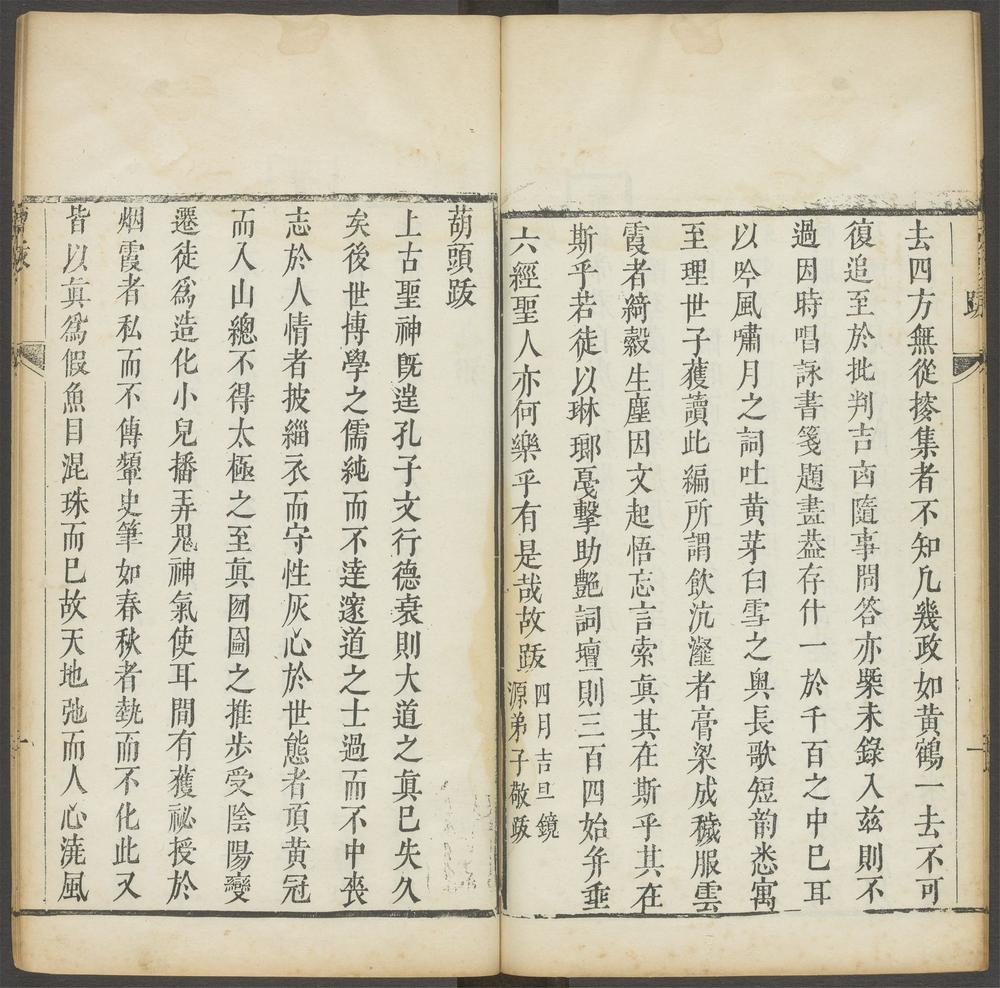 去四方無從搂集者不知凡幾政如黃鶴一去不可
復追至於批判吉㐫隨事問答亦槩未錄入兹則不
過因時唱詠書箋題畫葢存什一於千百之中已耳
以吟風嘯月之詞吐黃芽白雪之奧長歌短韵悉寓
至理世子獲讀此編所謂飲沆瀣者膏梁成穢服雲
霞者綺縠生塵因文起悟忘言索眞其在斯乎其在
斯乎若徒以琳瑯戞擊助艶詞壇則三百四始弁垂
六經聖人亦何樂乎有是哉故跋
四月吉旦鏡
源弟子敬跋
跋
葫頭跋
上古聖神旣遑孔子文行德衰則大道之眞已失久
矣後世博學之儒純而不達邃道之士過而不中喪
志於人情者披緇衣而守性灰心於世態者頂黃冠
而入山總不得太極之至眞囫圇之推步受陰陽變
遷徒爲造化小兒播弄鬼神氣使耳間有獲祕授於
烟霞者私而不傳顰史筆如春秋者執而不化此又
皆以眞爲假魚目混珠而已故天地弛而人心澆風